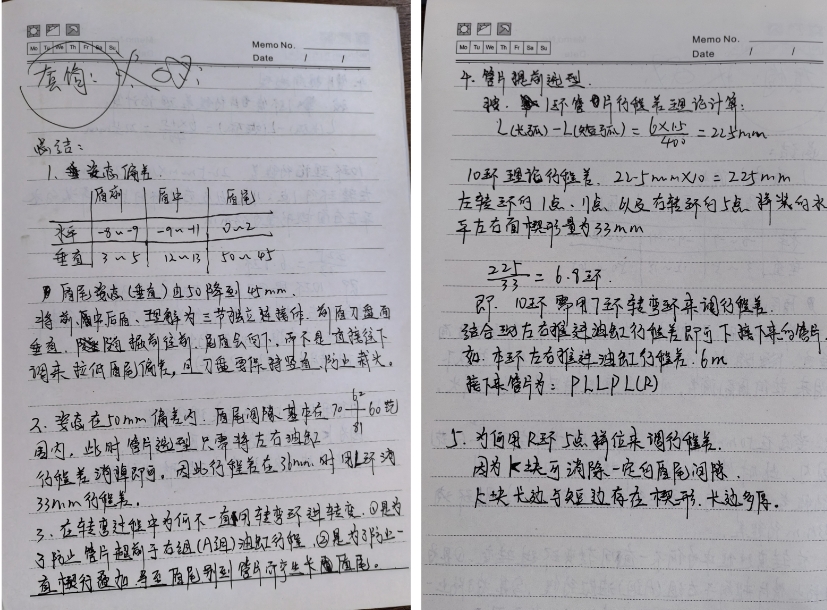 Mo Tu We Th Fr Sa Su
Memo No.
Date / /
总结:
1. 姿态偏差.
盾前 盾中 盾尾
水平 -8~-9 -9~-11 0~2
垂直 3~5 12~13 50~45
盾尾姿态(垂直)由50降到45mm.
将前、盾中后盾、理解为三节独立整体. 前盾刀盘面
垂直. 随掘前往前. 盾会向下. 而不是直接往下
调来拉低盾尾偏差, 刀盘要保持竖直, 防止栽头.
2. 姿态在50mm偏差内. 盾尾间隙基本在 62 70 60 81 范
围内, 此时管片选型只需将左右油缸
行程差消掉即可. 因此行程差在36mm.时用L环消
33mm行程差.
3. 在转弯过程中为何不一直用转弯环进转变. ①是为
了防止管片超前于右组(A组)油缸行程. ②是为了防止一
直楔行叠加 导至盾尾到管片而产生卡盾尾。
Mo Tu We Th Fr Sa Su
Memo No.
Date / /
4. 管片提前选型.
1环管片行程差理论计算:
L(长弧)-L(短弧) = 6×1.5/400 = 22.5mm
10环理论行程差. 22.5mm×10 = 225mm
左转环的1点、11点 以及右转环的5点 拼装的水
平左右面楔形量为33mm
225/33 = 6.8环.
即. 10环需用7环转弯环来调行程差.
结合现左右推进油缸行程差即可下接下来的管片.
如. 本环左右推进油缸行程差. 6m
接下来管片为: PLLPL(R)
5. 为何用R环5点拼位来调行程差.
因为K块可消除一定的盾尾间隙.
K块长边与短边存在楔形. 长边多厚.